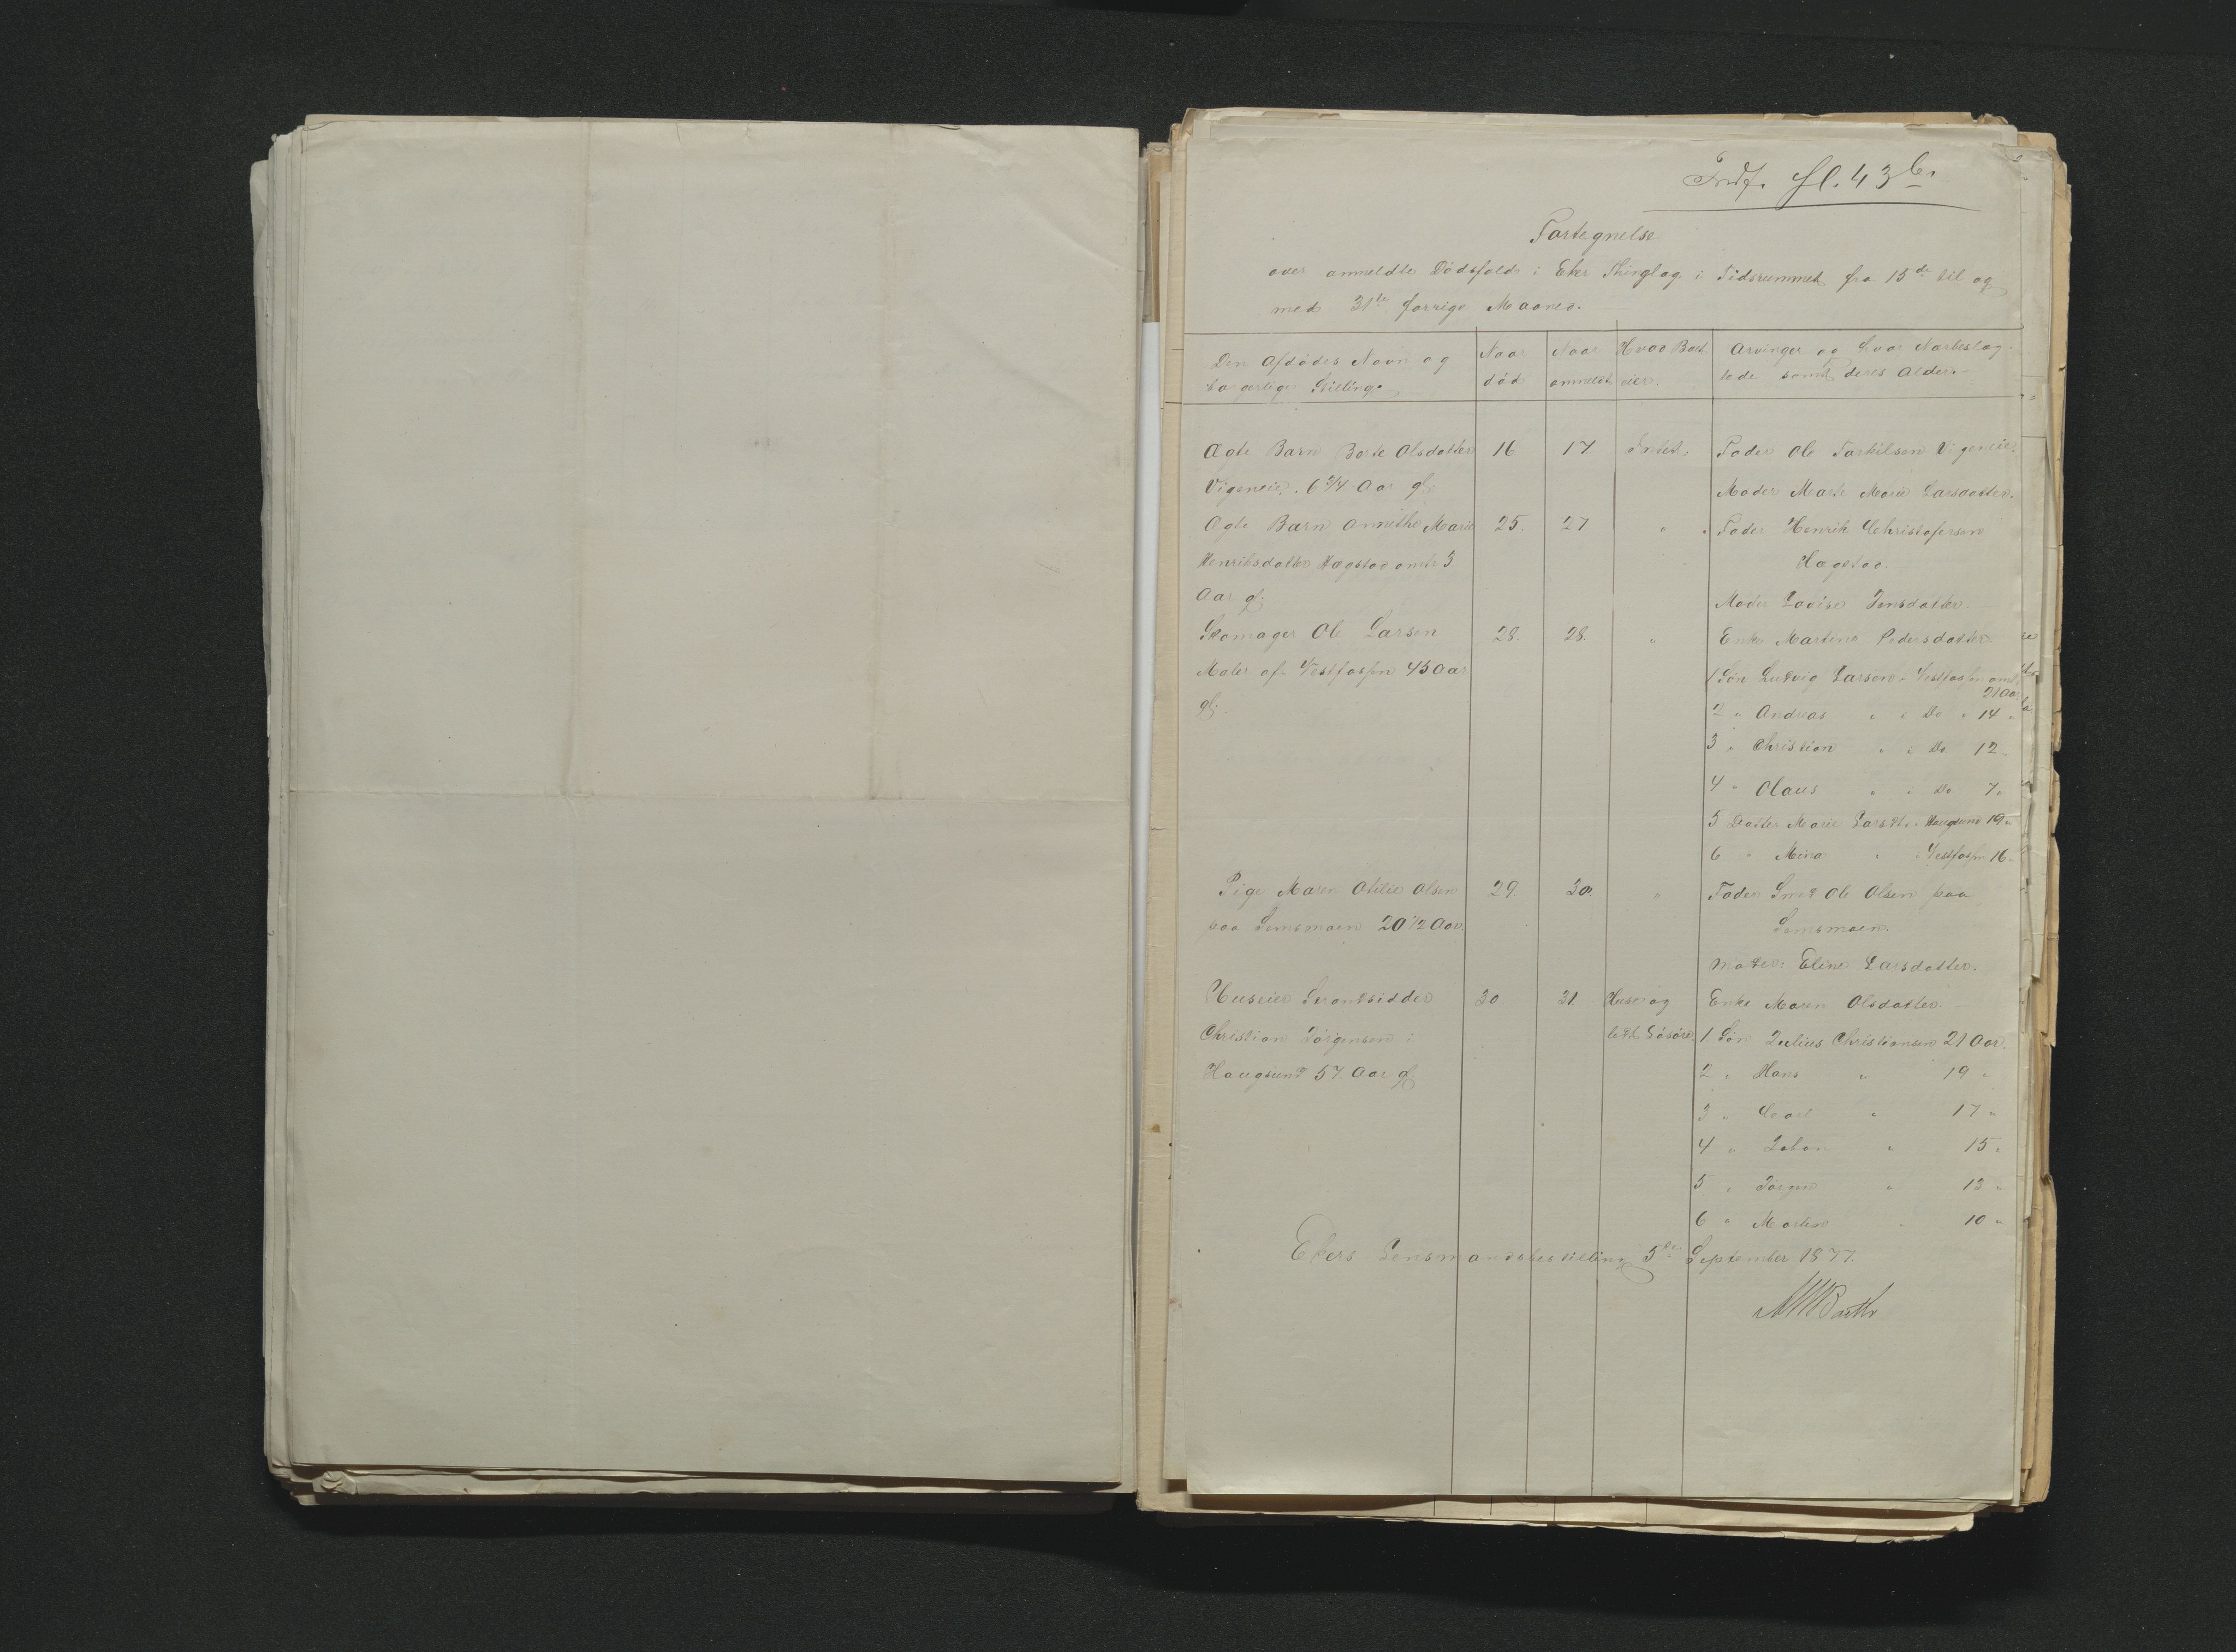 Indf. fl. 43 b.
Fortegnelse
over anmeldte Dödsfald i Eker Thinglag i Tidsrummet fra 15de til og
med 31te forrige Maaned.
Den Afdödes Navn og borgerlige Stilling. | Naar död | Naar anmeldt | Hvad Boet eier. | Arvinger og hvor Nærbeslagtede samt deres Alder.
Ægte Barn Berte Olsdatter | 16 | 17. | Intet. | Fader Ole Torkilsen Vigeneie.
Vigeneie. 6 3/4 Aar gl. | Moder Marte Marie Larsdatter.
Ægte Barn Annethe Marie | 25. | 27. | " | Fader Henrik Christofersen
Henriksdatter Hagstad omtr 3 | Hagstad.
Aar gl. | Moder Lovise Jensdatter.
Skomager Ole Larsen | 28. | 28. | " | Enke Martine Pedersdatter
Maler af Vestfossen 45 Aar | 1 Sön Ludvig Larsen i Vestfossen omtr 21 Aar
gl. | 2 " Andreas " i Do " 14 "
3 " Christian " i Do 12 "
4 " Olaus " i Do 7 "
5 Datter Marie Larsdt. i Haugsund 19 "
6 " Mina " i Vestfossen 16 "
Pige Maren Otilie Olsen | 29 | 30. | " | Fader Smed Ole Olsen paa
paa Semsmoen 20 1/2 Aar. | Semsmoen.
Moder: Eline Larsdatter.
Huseier Strandsidder | 30 | 31. | Huse og | Enke Maren Olsdatter.
Christian Jörgensen i | lidt Lösöre. | 1 Sön Julius Christiansen 21 Aar.
Haugsund 57 Aar gl. | 2 " Hans " 19 "
3 " Carl " 17 "
4 " Johan " 15 "
5 " Jörgen " 13 "
6 " Martin " 10 "
Ekers Lensmandsbestilling 5te September 1877.